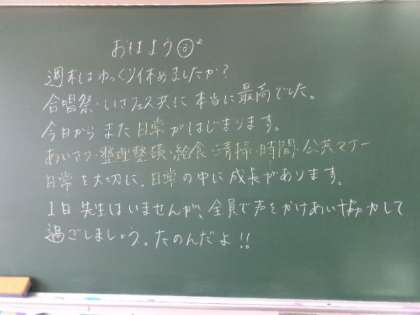 おはよう
週末はゆっくり休めましたか？
合唱祭・いさフェス共に本当に最高でした。
今日からまた日常がはじまります。
あいさつ・整理整頓・給食・清掃・時間・公共マナー
日常を大切に。日常の中に成長があります。
1日先生はいませんが、全員で声をかけあい協力して
過ごしましょう。たのんだよ!!